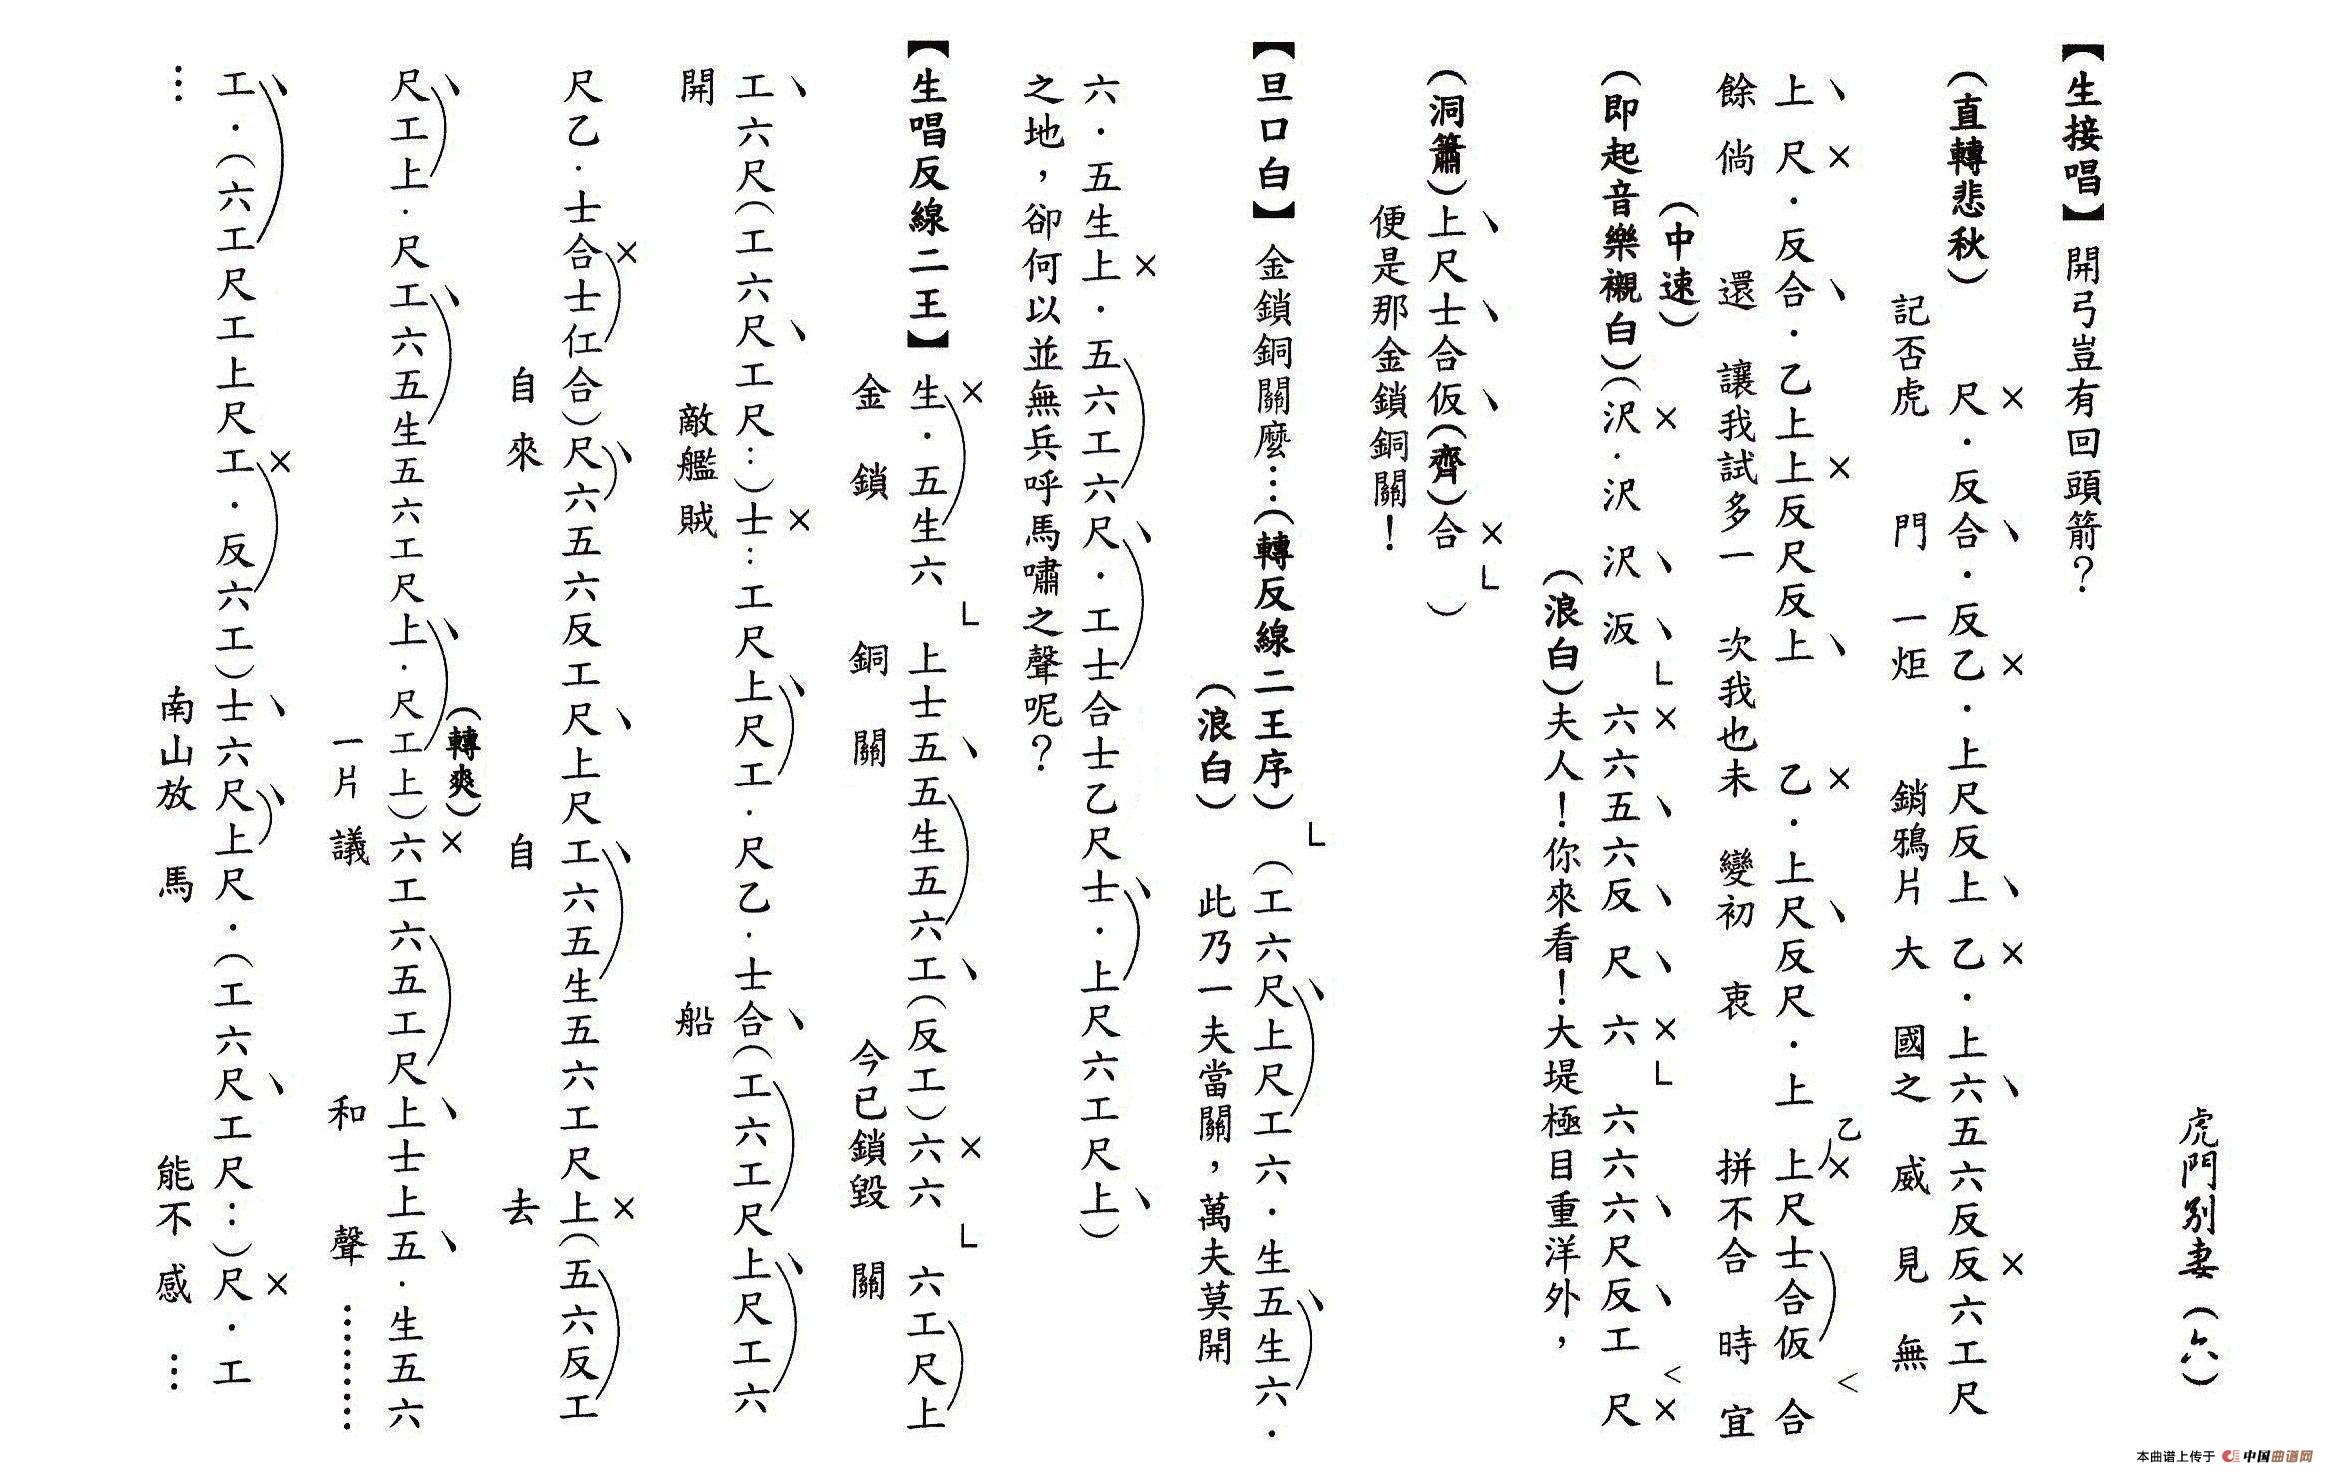 虎門別妻（六）
【生接唱】開弓豈有回頭箭？
（直轉悲秋）尺．反合．反乙．上尺反上乙．上六五六反反六工尺
記否虎門一炬銷鴉片大國之威見無
上尺．反合．乙上上反尺反上乙．上尺反尺．上乙上尺士合仮合
餘倘還讓我試多一次我也未變初衷拼不合時宜
（中速）
（即起音樂襯白）（沢．沢沢沠六六五六反尺六六六六尺反工尺
（浪白）夫人！你來看！大堤極目重洋外，
（洞簫）上尺士合仮（齊）合）
便是那金鎖銅關！
【旦口白】金鎖銅關麼…（轉反線二王序）（工六尺上尺工六．生五生六．
（浪白）此乃一夫當關，萬夫莫開
六．五生上．五六工六尺．工士合士乙尺士．上尺六工尺上）
之地，卻何以並無兵呼馬嘯之聲呢？
【生唱反線二王】生．五生六上士五五生五六工（反工）六六六工尺上
金鎖銅關今已鎖毀關
工六尺（工六尺工尺：）士：工尺上尺工．尺乙．士合（工六工尺上尺工六
開敵艦賊船
尺乙．士合士仜合）尺六五六反工尺上尺工六五生五六工尺上（五六反工
自來自去
（轉爽）
尺工上．尺工六五生五六工尺上．尺工上）六工六五工尺上士上五．生五六
一片議和聲………
工．（六工尺工上尺工．反六工）士六尺上尺．（工六尺工尺：）尺．工
…南山放馬能不感…
本曲谱上传于 中国曲谱网